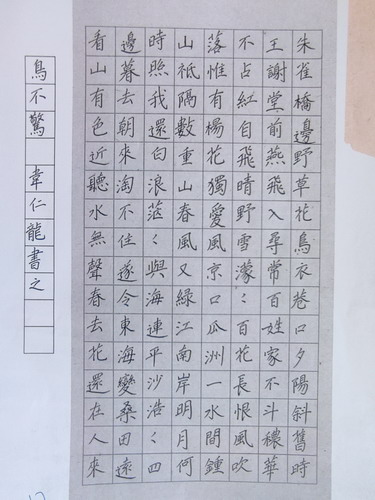 朱雀橋邊野草花鳥衣巷口夕陽斜舊時
王謝堂前燕飛入尋常百姓家不斗穠華
不占紅自飛晴野雪濛〻百花長恨風吹
落惟有楊花獨愛風京口瓜洲一水間鍾
山祗隔數重山春風又綠江南岸明月何
時照我還白浪茫〻嶼海連平沙浩〻四
邊暮去朝來淘不住遂令東海變桑田遠
看山有色近聽水無聲春去花還在人來
鳥不驚 韋仁龍書之